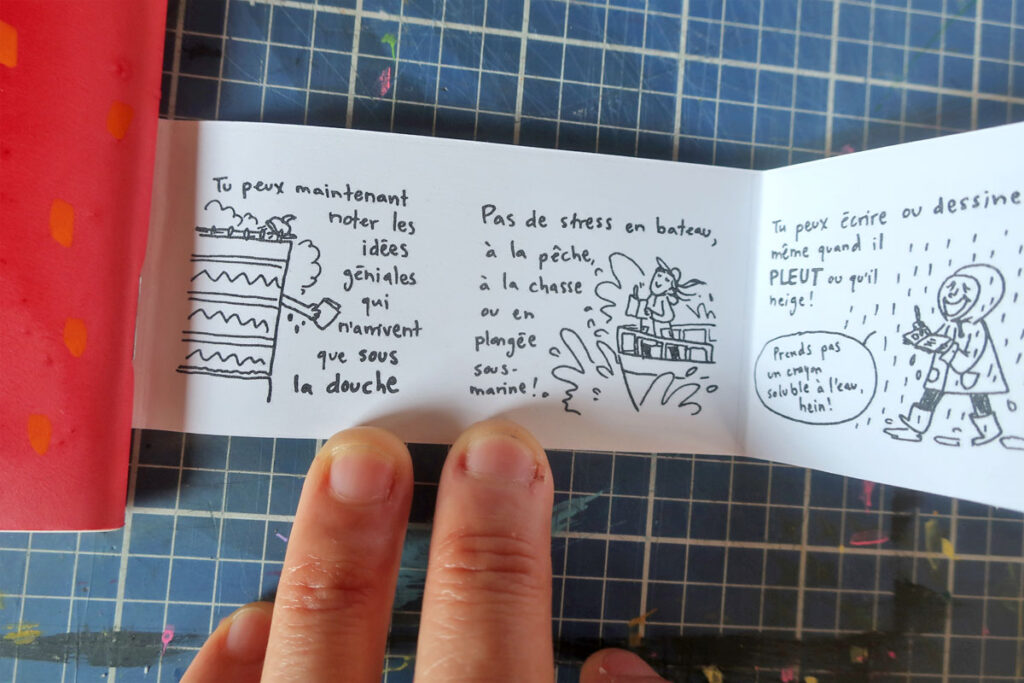 Tu peux maintenant
noter les
idées
géniales
qui
n'arrivent
que sous
la douche
Pas de stress en bateau,
à la pêche,
à la chasse
ou en
plongée
sous-
marine !
Tu peux écrire ou dessiner
même quand il
PLEUT ou qu'il
neige !
Prends pas
un crayon
soluble à l'eau,
hein !